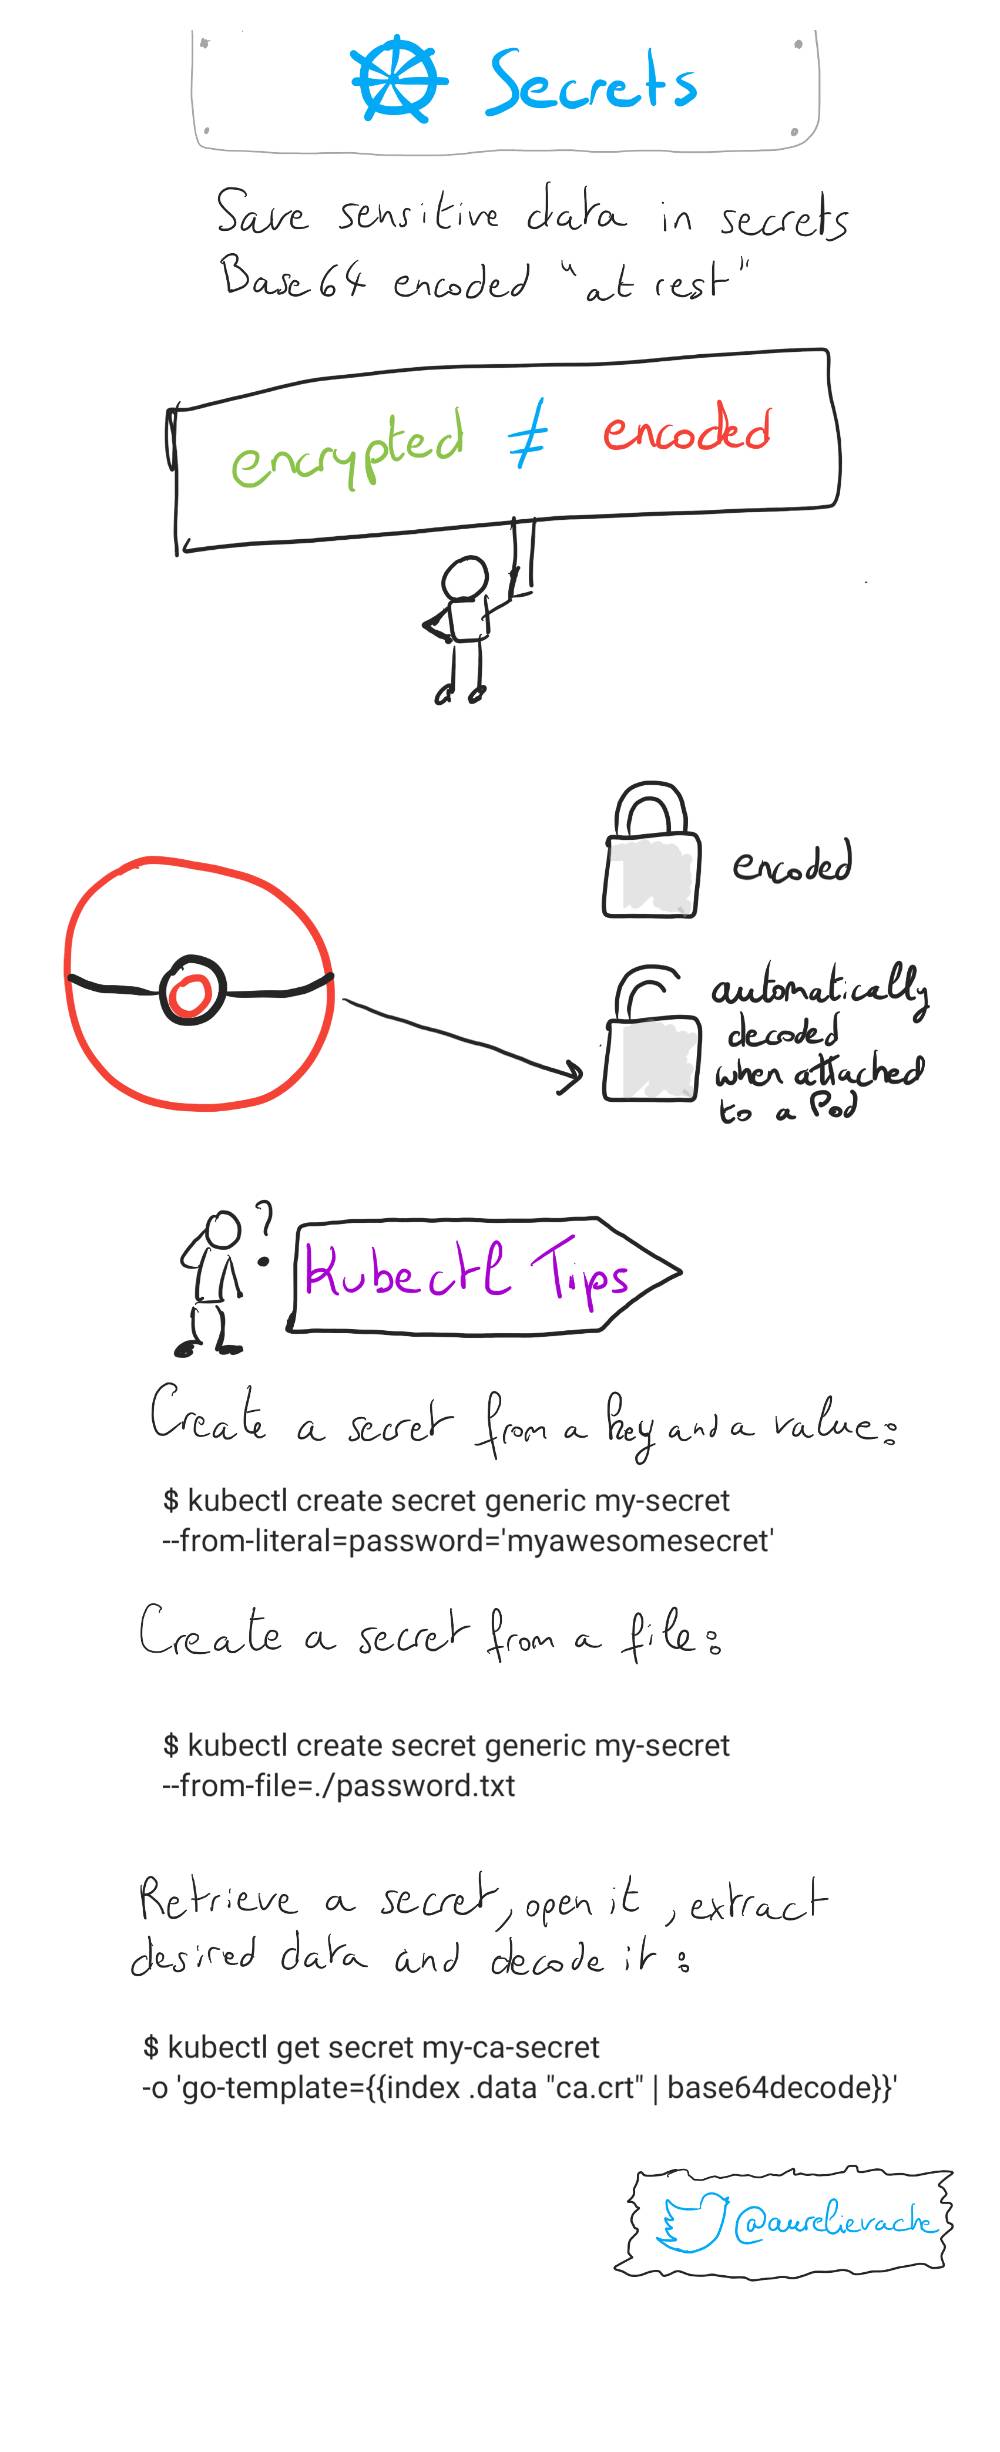 Secrets
Save sensitive data in secrets
Base64 encoded "at rest"
encrypted ≠ encoded
encoded
automatically
decoded
when attached
to a Pod
?
Kubectl Tips
Create a secret from a key and a value:
$ kubectl create secret generic my-secret
--from-literal=password='myawesomesecret'
Create a secret from a file:
$ kubectl create secret generic my-secret
--from-file=./password.txt
Retrieve a secret, open it, extract
desired data and decode it:
$ kubectl get secret my-ca-secret
-o 'go-template={{index .data "ca.crt" | base64decode}}'
@aurelievache